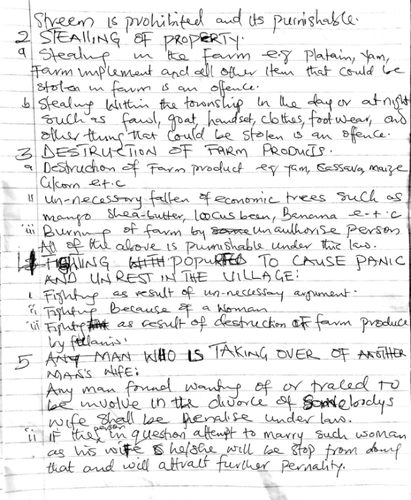 Streem is prohibited and its punishable.
2 STEALLING OF PROPERTY.
a Stealing in the Farm eg platain, yam,
Farm implement and all other item that could be
stolen in farm is an offence.
b Stealing within the township in the day or at night
such as fawl, goat, handset, clothes, footwear, and
other thing that could be stolen is an offence.
3 DESTRUCTION OF FARM PRODUCTS.
a Destruction of Farm product eg yam, cassava, maize
G/corn e.t.c
ii un-necessary fallen of economic trees such as
mango shea-butter, locus bean, Banana e.t.c
iii Burning of farm by unauthorise person
All of the above is punishable under this law.
TO CAUSE PANIC
AND UNREST IN THE VILLAGE:
i Fighting as result of un-neccessary argument.
ii Fighting Because of a woman
iii as result of destruction of farm produce
by fulanis.
5 ANY MAN WHO IS TAKING OVER OF ANOTHER
MAN'S WIFE:
Any man found wanting of or traced to
be involve in the divorce of somebodys
wife shall be penalise under law.
ii if the person in question attempt to marry such woman
as his wife he/she will be stop from doing
that and will attract further pernality.